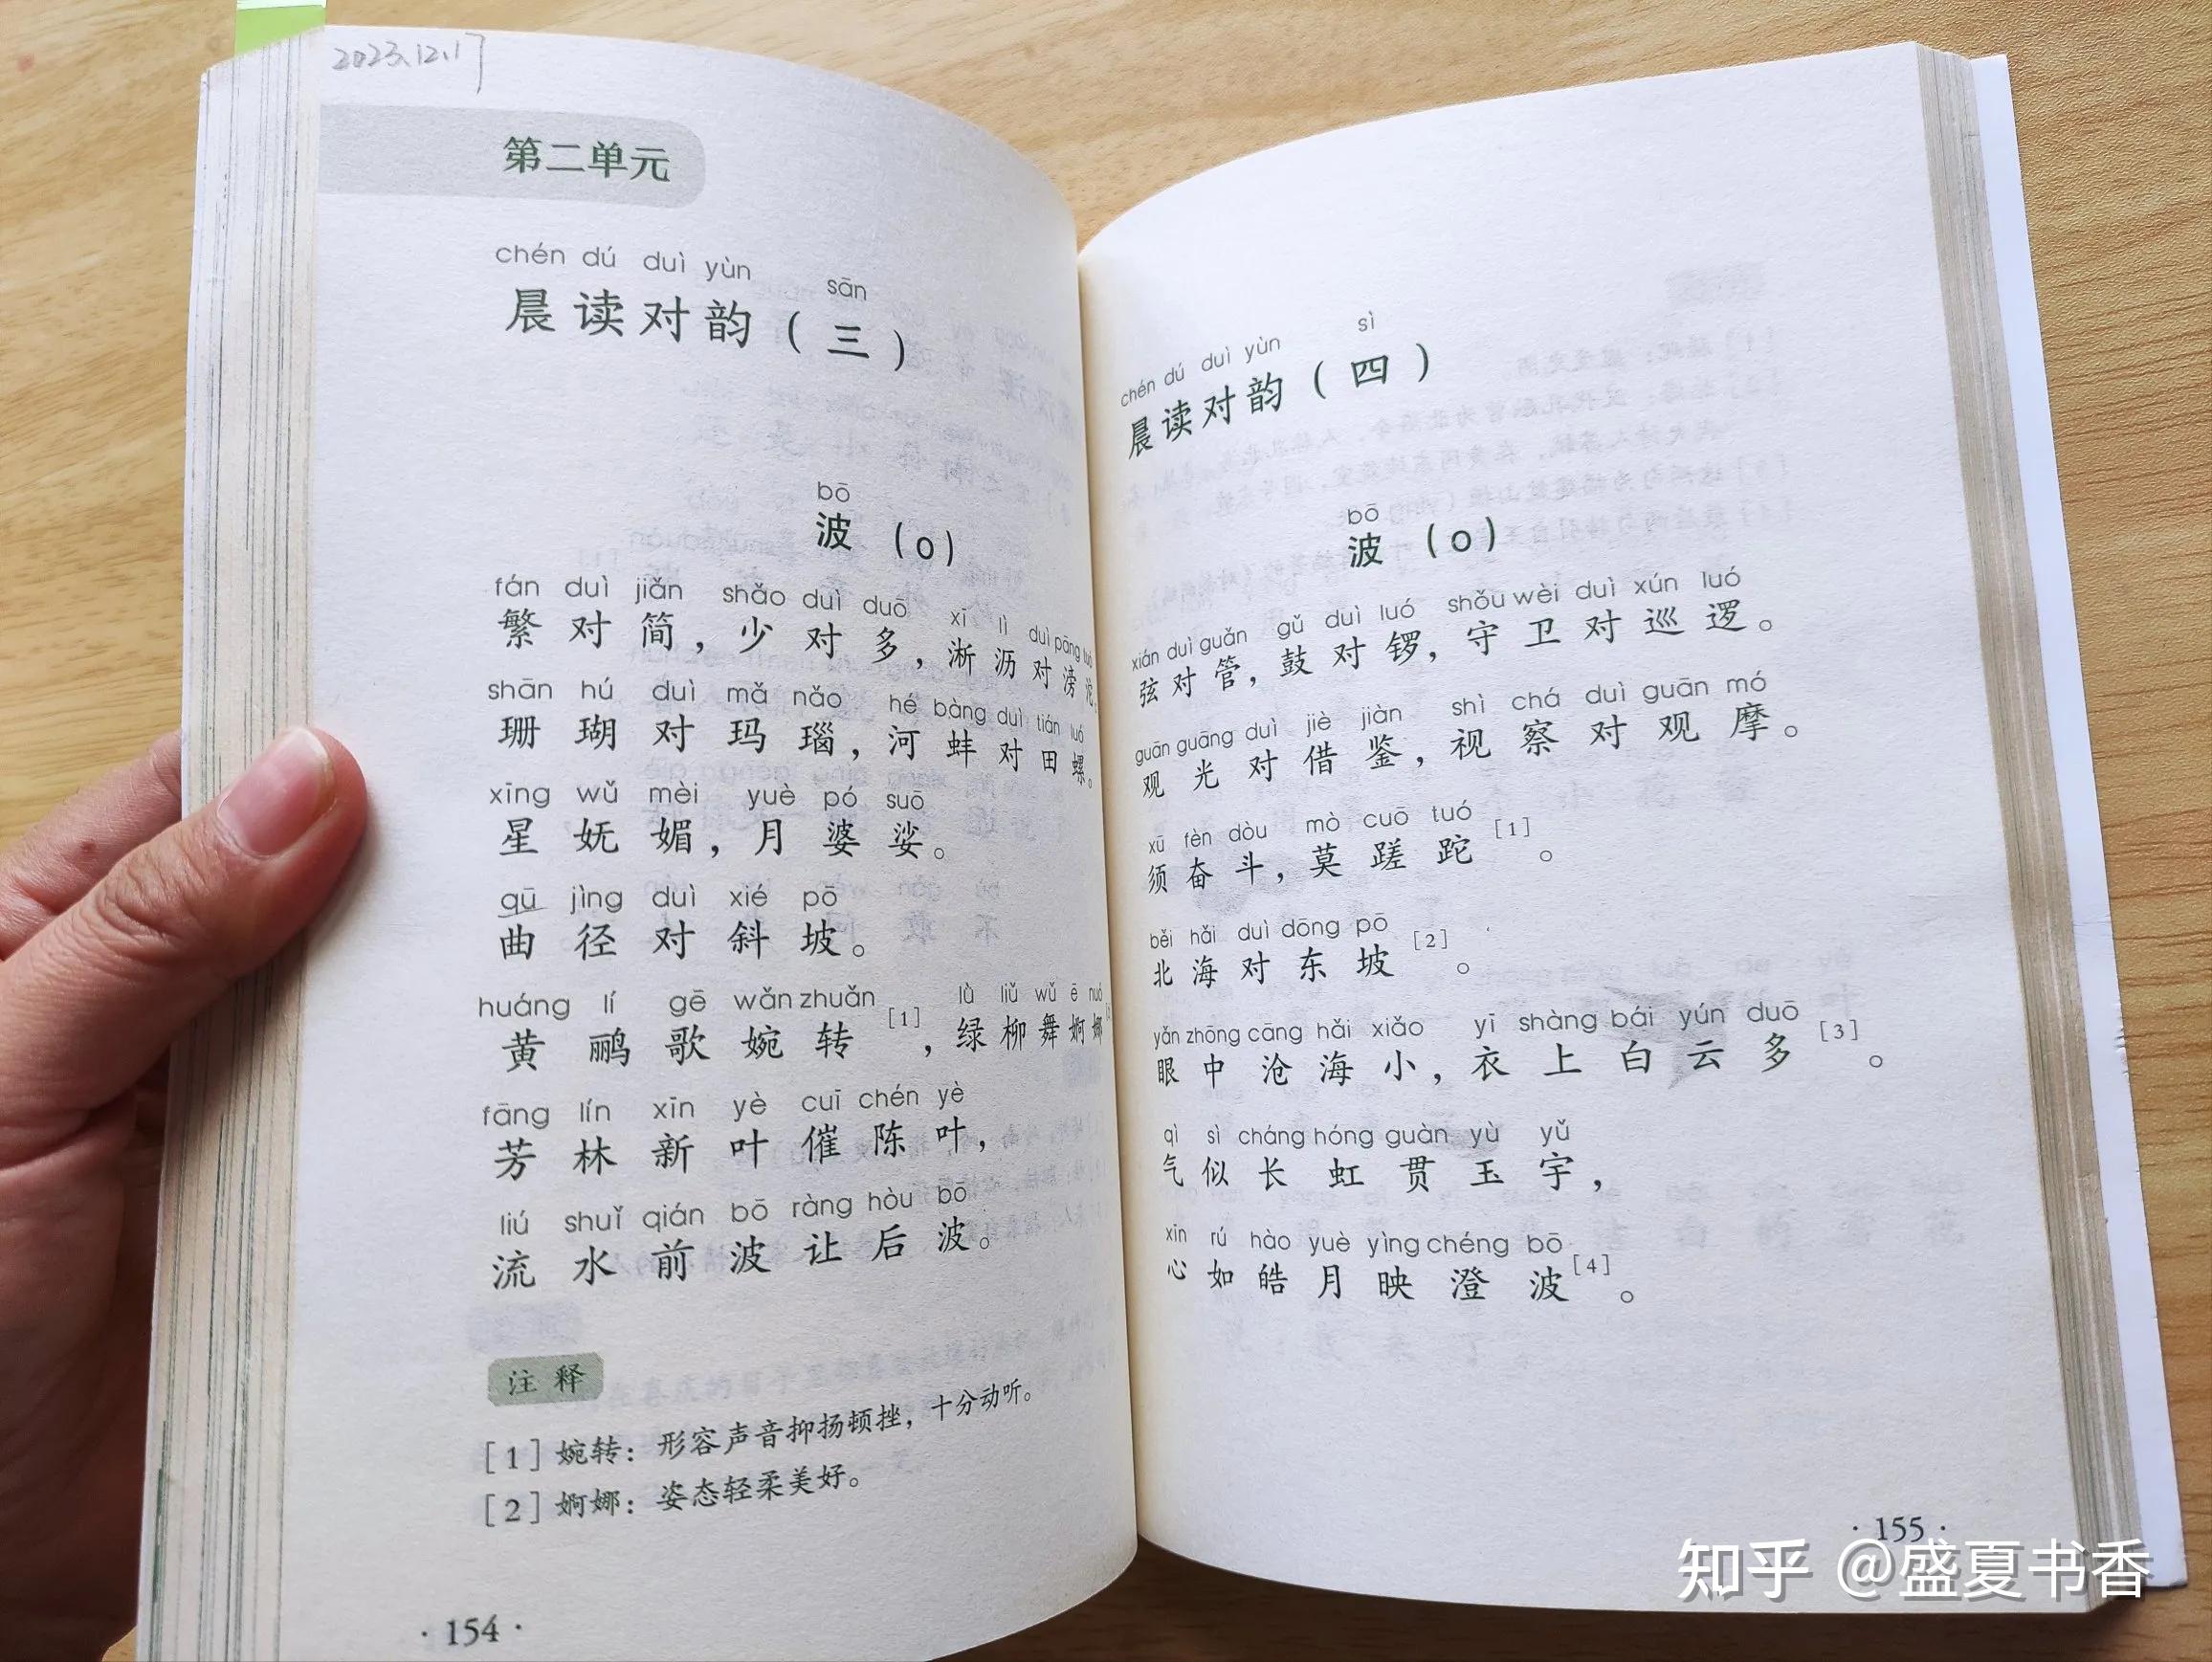 2023.12.17
第二单元
chén dú duì yùn sān
晨读对韵（三）
bō
波（o）
fán duì jiǎn shǎo duì duō xī lì duì pāng tuó
繁对简，少对多，淅沥对滂沱。
shān hú duì mǎ nǎo hé bàng duì tián luó
珊瑚对玛瑙，河蚌对田螺。
xīng wǔ mèi yuè pó suō
星妩媚，月婆娑。
qū jìng duì xié pō
曲径对斜坡。
huáng lí gē wǎn zhuǎn lǜ liǔ wǔ ē nuó
黄鹂歌婉转[1]，绿柳舞婀娜
fāng lín xīn yè cuī chén yè
芳林新叶催陈叶，
liú shuǐ qián bō ràng hòu bō
流水前波让后波。
注释
[1]婉转：形容声音抑扬顿挫，十分动听。
[2]婀娜：姿态轻柔美好。
·154·
chén dú duì yùn sì
晨读对韵（四）
bō
波（o）
xián duì guǎn gǔ duì luó shǒu wèi duì xún luó
弦对管，鼓对锣，守卫对巡逻。
guān guāng duì jiè jiàn shì chá duì guān mó
观光对借鉴，视察对观摩。
xū fèn dòu mò cuō tuó
须奋斗，莫蹉跎[1]。
běi hǎi duì dōng pō
北海对东坡[2]。
yǎn zhōng cāng hǎi xiǎo yī shàng bái yún duō
眼中沧海小，衣上白云多[3]。
qì sì cháng hóng guàn yù yǔ
气似长虹贯玉宇，
xīn rú hào yuè yìng chéng bō
心如皓月映澄波[4]。
·155·
知乎 @盛夏书香